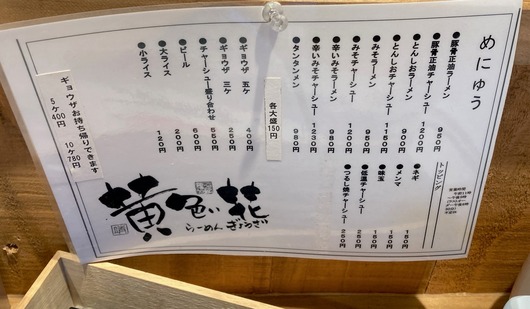 めにゅう
●豚骨正油ラーメン 950
●豚骨正油チャーシュー 1200
●とんしおラーメン 900
●とんしおチャーシュー 1150
●みそラーメン 950
●みそチャーシュー 1200
●辛いみそラーメン 980
●辛いみそチャーシュー 1230
●タンタンメン 980
各大盛 150円
●ギョウザ 五ケ 400円
●ギョウザ 三ケ 250円
●チャーシュー盛り合わせ 550円
●ビール 600円
●大ライス 200円
●小ライス 120円
ギョウザお持ち帰りできます
5ケ400円 10ケ780円
トッピング
●ネギ 150
●メンマ 150
●味玉 150
●低温チャーシュー 250
●つるし焼チャーシュー 250
営業時間
黄色い花
らーめん ぎょうざ